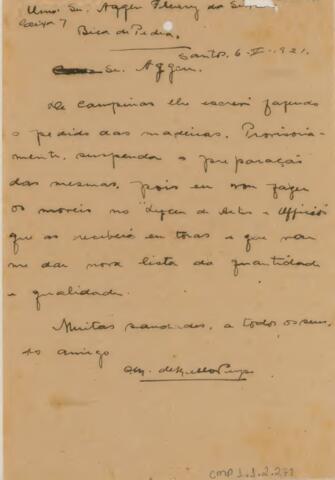 Illmo. Sr. Aggeu Fleury da Silveira
Caixa 7
Bica de Pedra.
Santos, 6-V-921.
Sr. Aggeu.
De Campinas lhe escrevi fazendo
o pedido das madeiras. Provisoria-
mente, suspenda a preparação
das mesmas, pois eu vou fazer
os moveis no "Lyceu de Artes e Officios"
que as receberá em toras e que vae
me dar nova lista da quantidade
e qualidade.
Muitas saudades, a todos os seus,
do amigo
de Mello
CMP 1.1.2.2